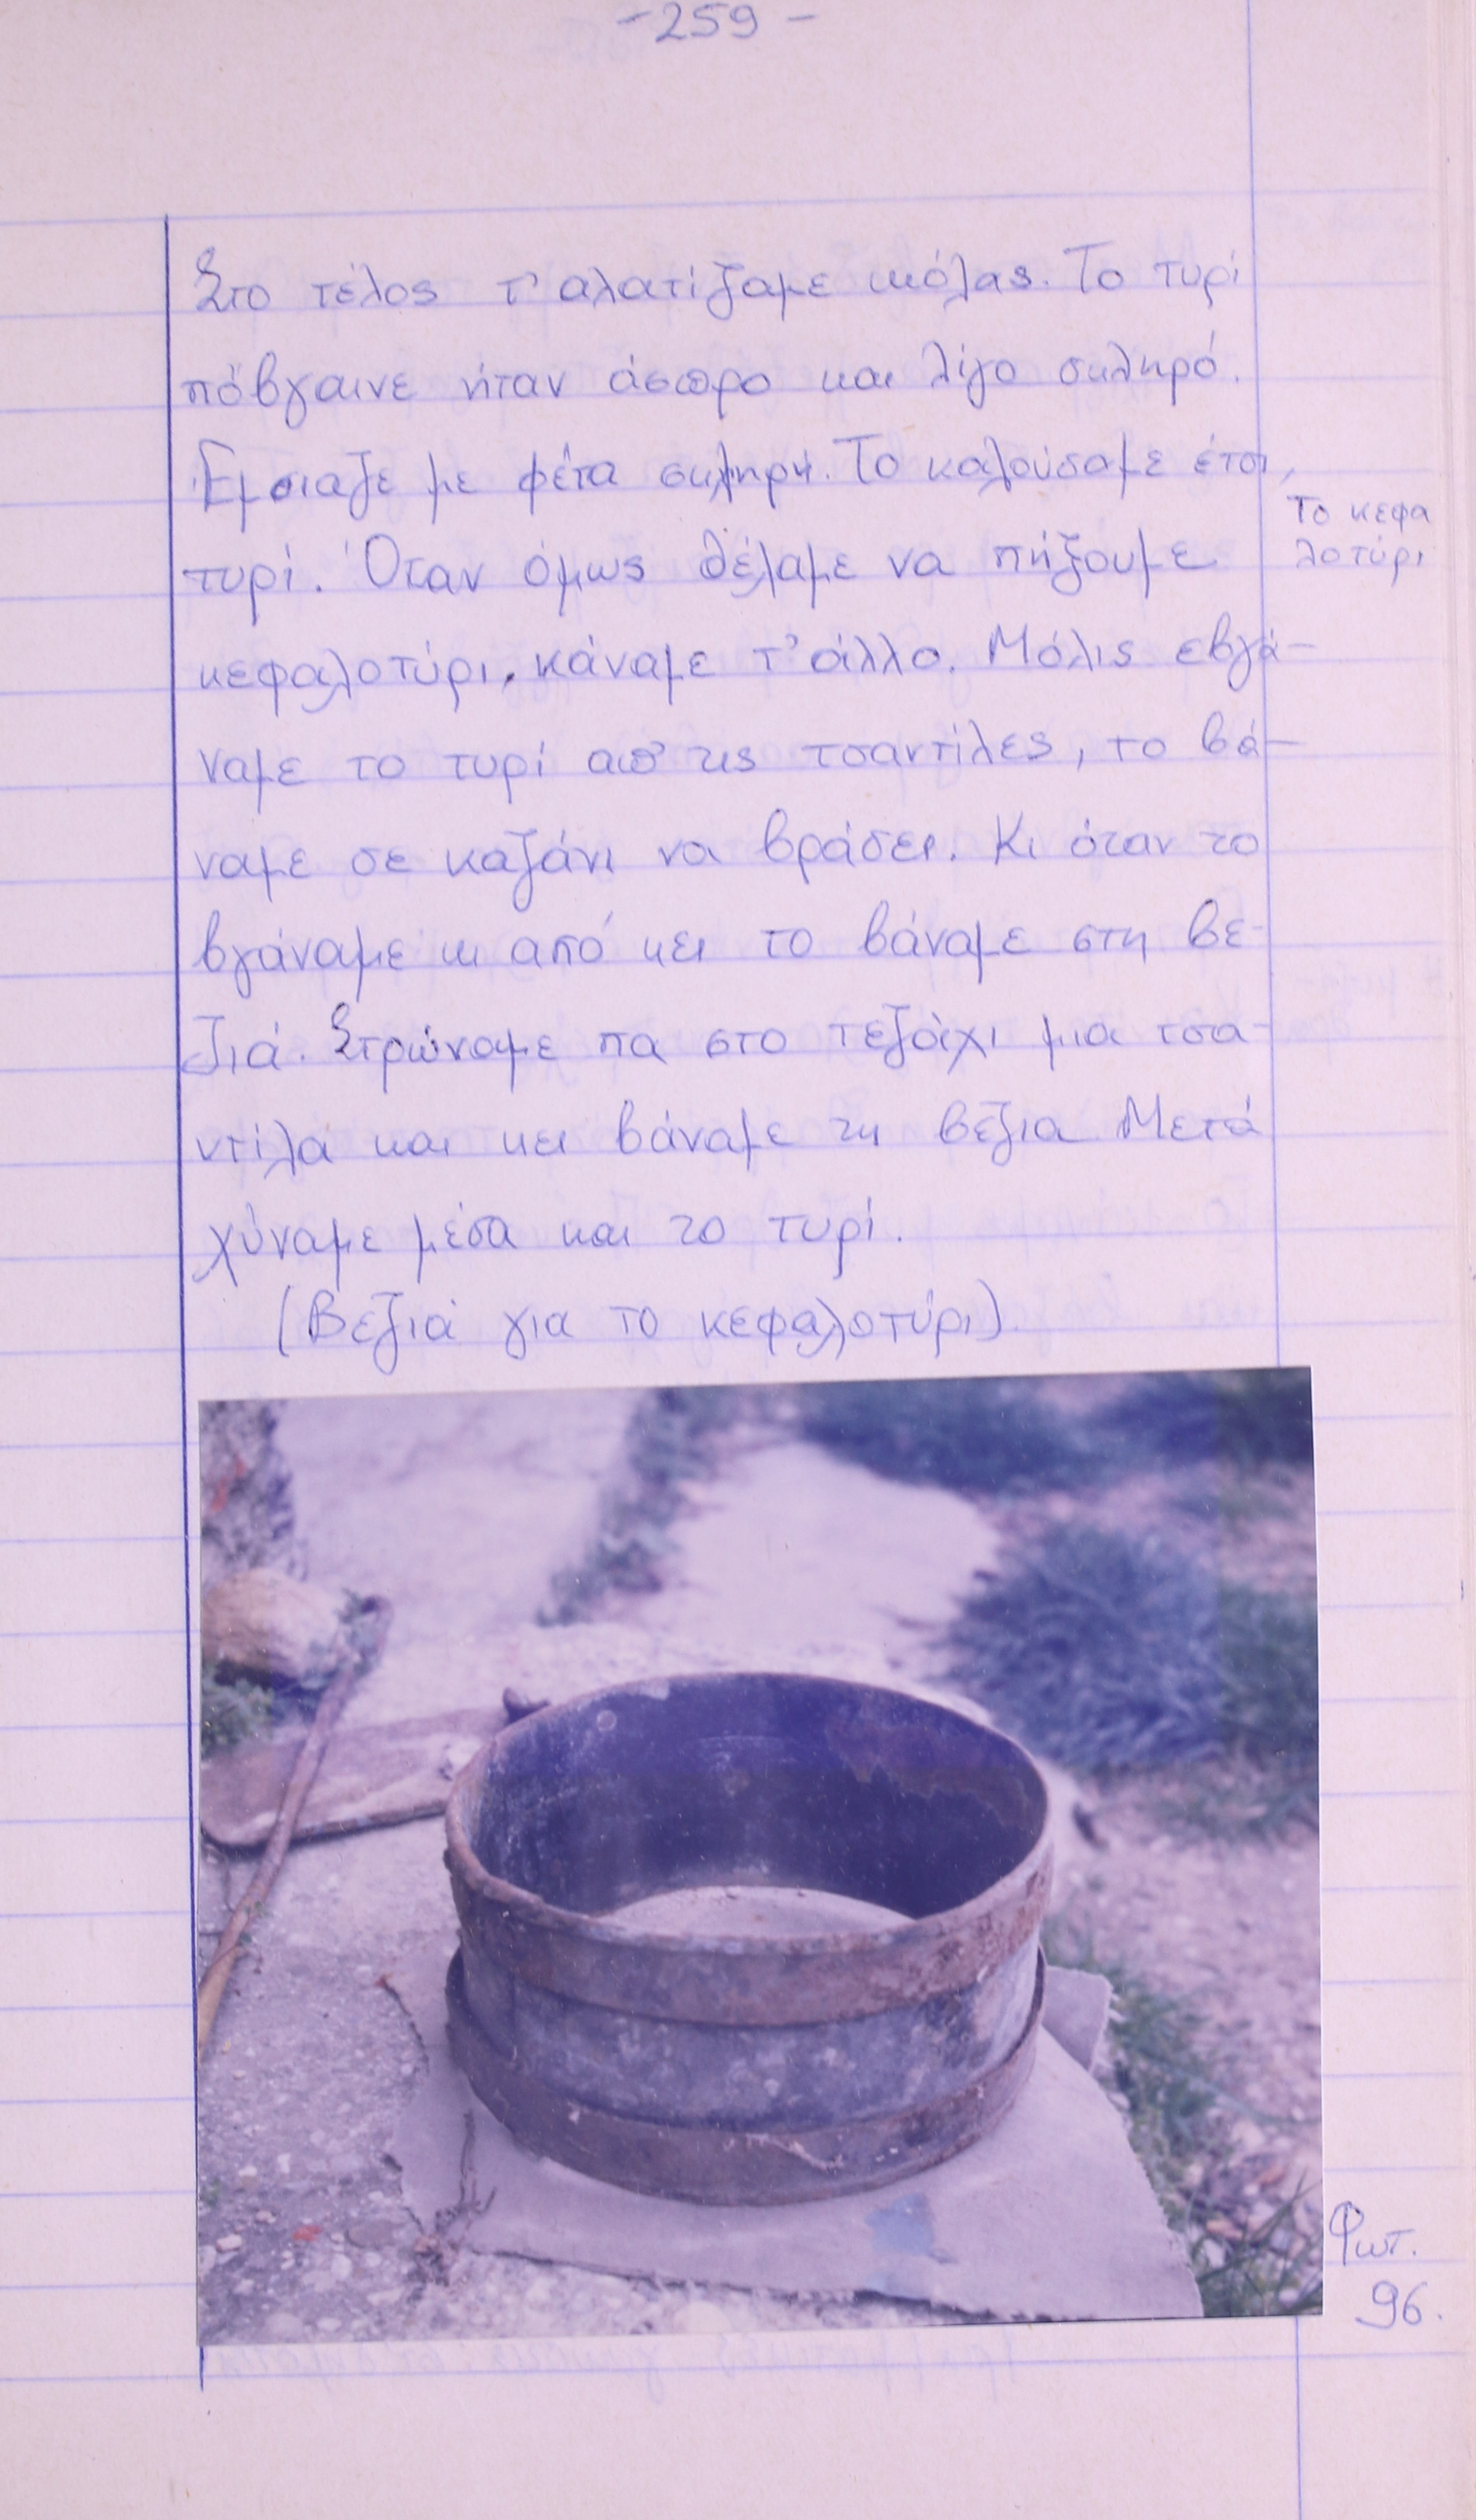 -259-
Στο τέλος τ' αλατίζαμε κιόλας. Το τυρί
πόβγαινε ήταν άσπρο και λίγο σκληρό.
Έμοιαζε με φέτα σκληρή. Το καλούσαμε έτσι,
τυρί. Όταν όμως θέλαμε να πήξουμε
Το κεφα
λοτύρι
κεφαλοτύρι, κάναμε τ' άλλο. Μόλις εβγά-
ναμε το τυρί απ' τις τσαντίλες, το βά-
ναμε σε καζάνι να βράσει. Κι όταν το
βγάναμε κι από κει το βάναμε στη βε-
ζιά. Στρώναμε πα στο τεζάχι μια τσα-
ντίλα και κει βάναμε τη βέζια Μετά
χύναμε μέσα και το τυρί.
(Βεζιά για το κεφαλοτύρι)
Φωτ.
96.